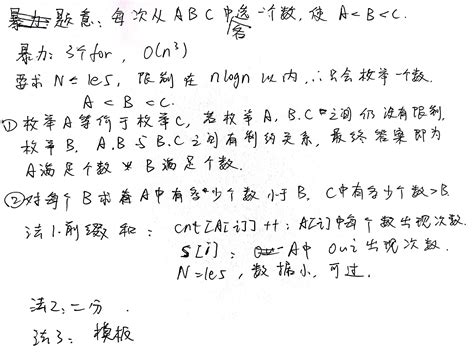 题意：每次从 A B C 中各选一个数，使 A < B < C.
暴力：3个for，O(n³)
要求 N ≤ 1e5，限制在 nlogn 以内，∴只会枚举一个数.
A < B < C.
① 枚举A等价于枚举C，若枚举A，B.C之间仍没有限制.
枚举B，A.B与B.C之间有制约关系，最终答案即为
A满足个数 * B满足个数.
② 对每个B求着A中有多少个数小于B，C中有多少个数>B.
法1.前缀和： cnt[A[i]]++：A[i]中每个数出现次数.
S[i]： A中 0~i 出现次数.
N=1e5，数据小，可过.
法2：二分.
法3：模板